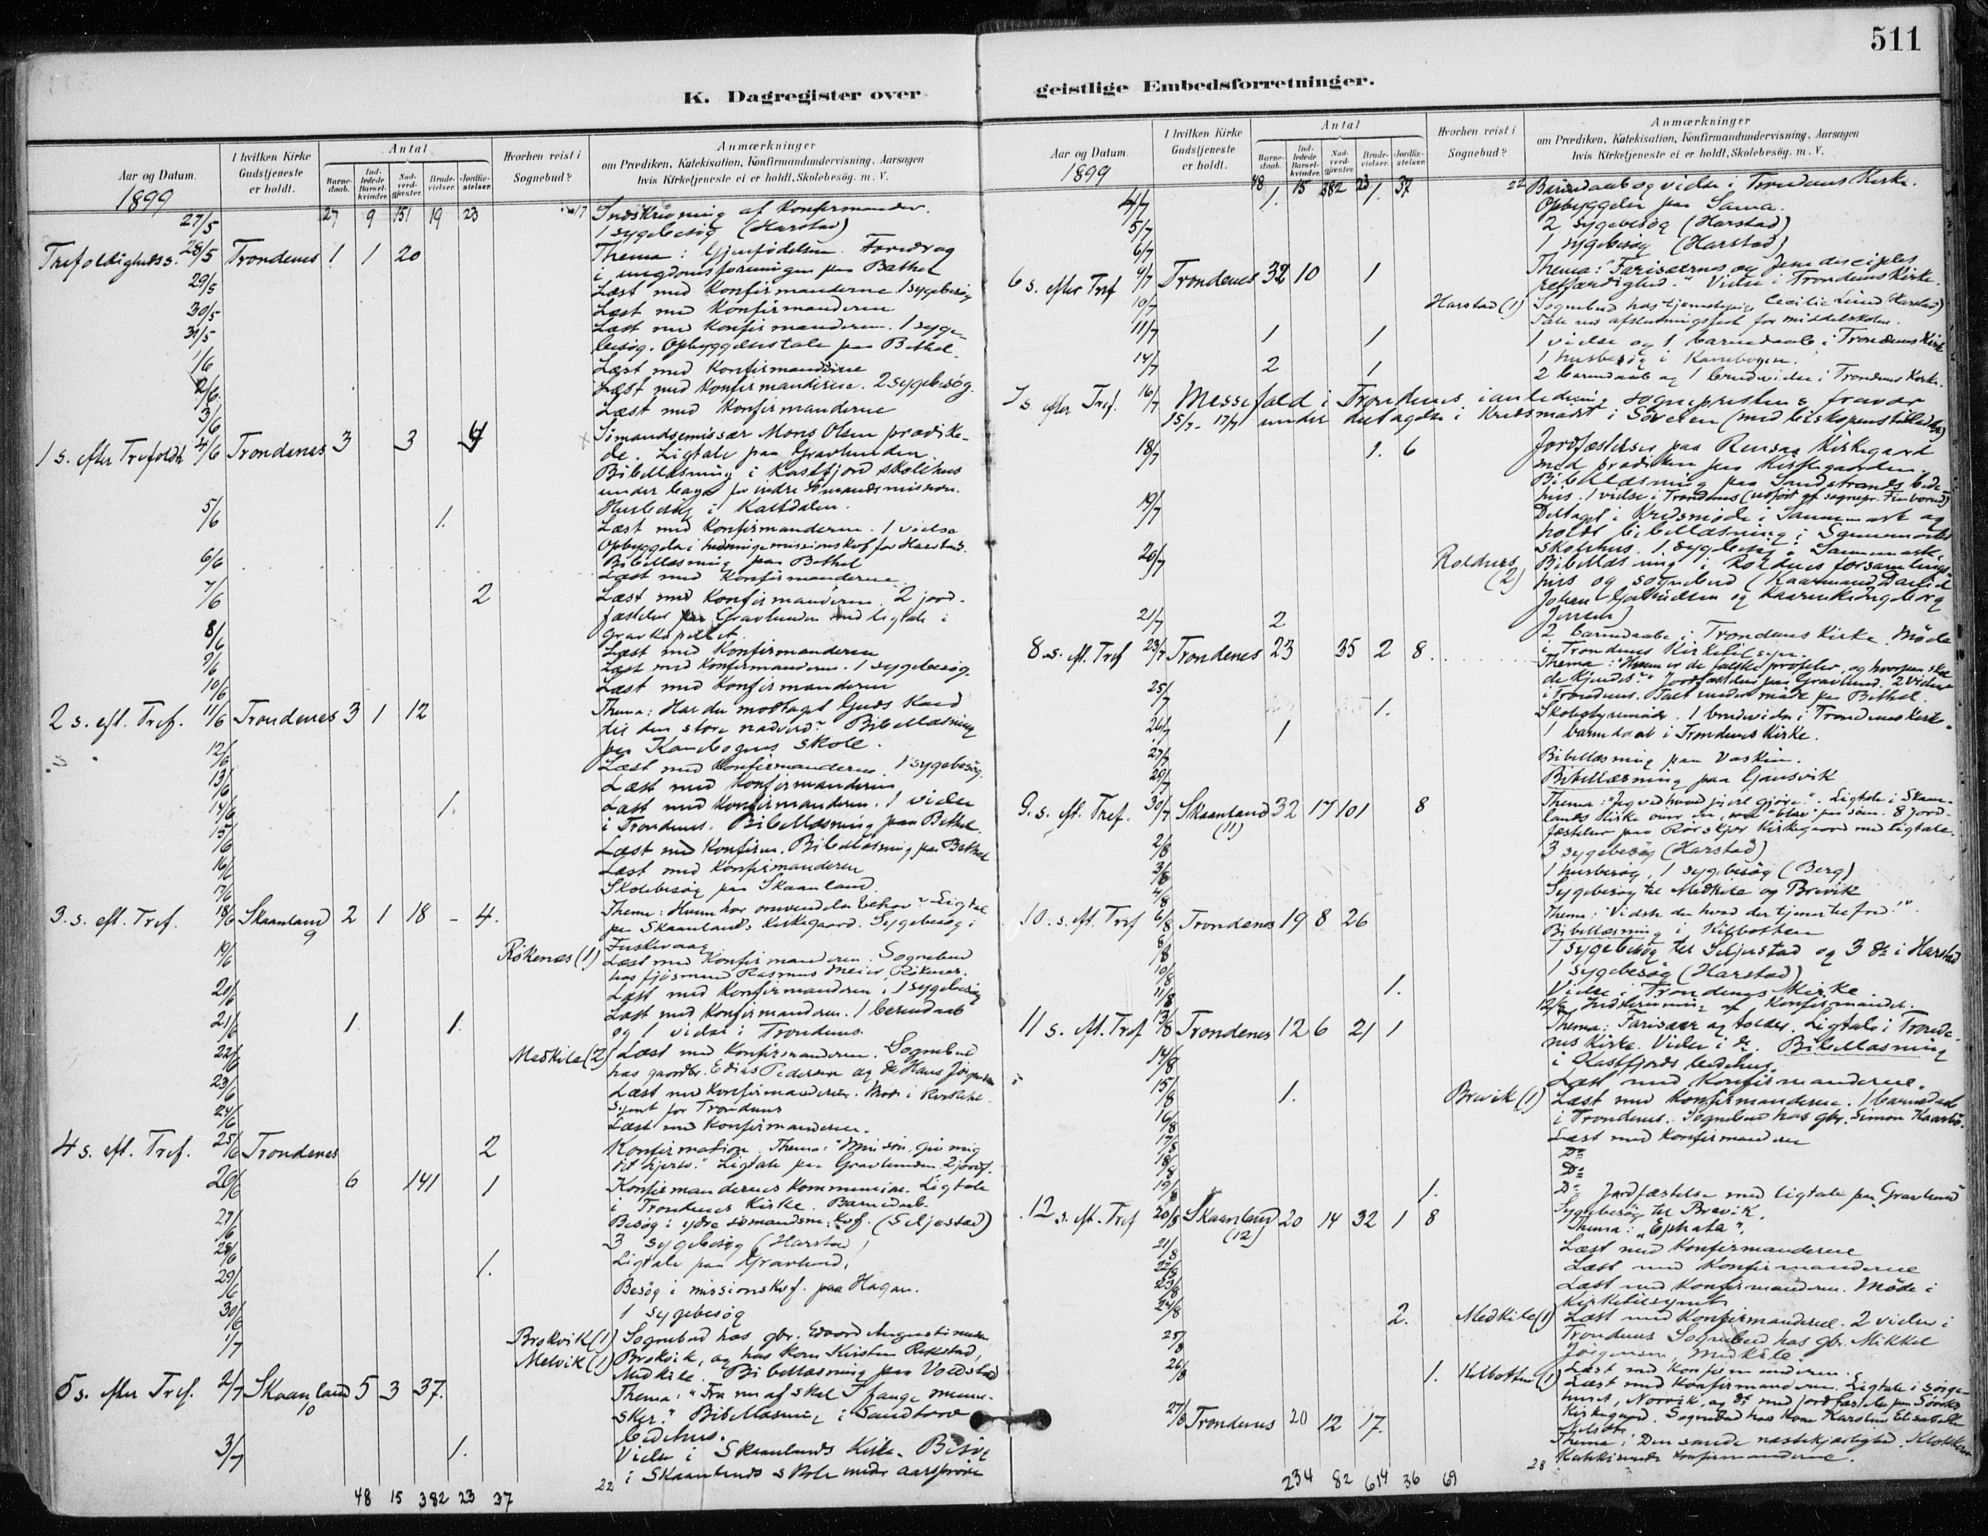 511
K. Dagregister over
geistlige Embedsforretninger.
Aar og Datum.
I hvilken Kirke Gudstjeneste er holdt.
Antal
Barne-daab.
Ind-ledede Barsel-kvinder.
Nad-verd-gjæster.
Brude-vielser.
Jordfæ-stelser.
Hvorhen reist i Sognebud?
Anmærkninger
om Prædiken, Katekisation, Konfirmandundervisning, Aarsagen
hvis Kirketjeneste ei er holdt, Skolebesøg. m. V.
1899
27 9 151 19 23 17
27/5 Indskrivning af Konfirmander.
1 sygebesøg (Harstad)
Trefoldigheds s. 28/5 Trondenes 1 1 20 Thema: Gjenfødelsen. Foredrag
i ungdomsforeningen paa Bethel
29/5 Læst med Konfirmanderne 1 sygebesøg
30/5 Læst med Konfirmanderne
31/5 Læst med Konfirmanderne. 1 syge-
besøg. Opbyggelsestale paa Bethel.
1/6 Læst med Konfirmanderne
2/6 Læst med Konfirmanderne. 2 sygebesøg.
3/6 Læst med Konfirmanderne
1 s. efter Trefoldh 4/6 Trondenes 3 3 4 Sømandsemissær Mons Olsen prædike-
de. Ligtale paa Gravlunden.
Bibellæsning i Kasfjord skolehus
under bazar for indre sømandsmission.
Husbesøg i Kaltdalen.
5/6 1. Læst med Konfirmanderne. 1 vielse
Opbyggelse i hedningemissionskvf. for Harstad.
6/6 Bibellæsning paa Bethel
Læst med Konfirmanderne.
7/6 2 Læst med Konfirmanderne. 2 jord-
fæstelser paa Gravlunden med ligtale i
Gravkapellet.
8/6 Læst med Konfirmanderne
9/6 Læst med Konfirmanderne. 1 sygebesøg.
10/6 Læst med Konfirmanderne
2 s. eft. Tref. 11/6 Trondenes 3 1 12 Thema: Har du modtaget Guds Kald
til den store nadverd? Bibellæsning
paa Kanebogens skole.
12/6 Læst med Konfirmanderne. 1 sygebesøg.
13/6 Læst med Konfirmanderne
14/6 1. Læst med Konfirmanderne. 1 vielse
i Trondenes. Bibellæsning paa Bethel.
15/6 Læst med Konfirm. Bibellæsning paa Bethel
16/6 Læst med Konfirmanderne
17/6 Skolebesøg paa Skaanland.
3. s. eft. Tref. 18/6 Skaanland 9 2 1 18 - 4. Thema: Hvem har omvendelse behov? Ligtale
paa Skaanlands Kirkegaard. Sygebesøg i
Fuskevaag
19/6 Røkenæs (1) Læst med Konfirmanderne. Sognebud
hos fjøsmand Rasmus Meier Røkenes.
20/6 Læst med Konfirmanderne. 1 sygebesøg
21/6 1 1. Læst med Konfirmanderne. 1 barnedaab
og 1 vielse i Trondenes.
22/6 Medkile (2) Læst med Konfirmanderne. Sognebud
hos gaardbr. Edias Pedersen og Hans Jørgensen
23/6 Læst med Konfirmanderne. Møde i
synet for Trondenes
24/6 Læst med Konfirmanderne.
4 s. eft. Tref. 25/6 Trondenes 2 Konfirmation. Thema: "Min søn, giv mig
dit hjerte." Ligtale paa Gravlunden. 2 jordf.
26/6 6 141 1 Konfirmandernes kommunion. Ligtale
i Trondenes Kirke. Barnedaab.
27/6 Besøg i ydre sømandsm. kvf. (Seljestad)
28/6 3 sygebesøg (Harstad)
29/6 1. Ligtale paa Gravlund.
Besøg i missionskvf. paa Hagan.
30/6 1 sygebesøg
1/7 Brokvik (1) Sognebud hos gbr. Edvard Augustinussen
Melvik (1) Brokvik, og hos kone Kirsten Rokstad,
Medkile. Bibellæsning paa Voldstad
5 s. efter Tref. 2/7 Skaanland 10 5 3 37. Thema: "Fra nu af skal I fange menne-
sker." Bibellæsning i Sandtorv
bedehus.
3/7 1. Vielse i Skaanlands Kirke. Besøg
i Skaanlands skole under aarsprøve
48 15 382 23 37 22
Aar og Datum.
I hvilken Kirke Gudstjeneste er holdt.
Antal
Barne-daab.
Ind-ledede Barsel-kvinder.
Nad-verd-gjæster.
Brude-vielser.
Jordfæ-stelser.
Hvorhen reist i Sognebud?
Anmærkninger
om Prædiken, Katekisation, Konfirmandundervisning, Aarsagen
hvis Kirketjeneste ei er holdt, Skolebesøg. m. V.
1899
48 15 382 23 37 22
4/7 1. 1. Barnedaab og vielse i Trondenes Kirke.
Opbyggelse paa Sama.
5/7 2 sygebesøg (Harstad)
6/7 1 sygebesøg (Harstad)
6 s. efter Tref 9/7 Trondenes 32 10 1 Thema: "Farisæernes og Jesu disciples
retfærdighed." Vielse i Trondenes Kirke.
10/7 Harstad (1) Sognebud hos tjenestepige Cecilie Lund (Harstad)
Tale ved afslutningsfest for middelskolen.
11/7 1 1 1 vielse og 1 barnedaab i Trondenes Kirke
1 husbesøg i Kanebogen.
14/7 2 1 2 barnedaab og 1 brudevielse i Trondenes Kirke.
7 s. efter Tref. 16/7 Messefald i Trondenes i anledning sogneprestens fravær
15/7-17/7 under deltagelse i Kredsmødet i Sørreisen (med biskopens tilladelse)
18/7 1. 6 Jordfæstelser paa Rensaa Kirkegaard
med prædiken paa Kirkegaarden.
Bibellæsning paa Sandstrands bede-
hus. 1 vielse i Trondenes (udført af sognepr. Finborud)
19/7 Deltaget i Kredsmøde i Sannemark og
holdt bibellæsning i Sannemarkes
skolehus. 1 sygebesøg i Sannemark.
20/7 Roldnes (2) Bibellæsning i Roldnes forsamlings-
hus og sognebud (Kaarmand Daniel
Johan Gabrielsen og Kaarenke Ingeborg
Jensen)
21/7 2 2 barnedaabe i Trondenes Kirke. Møde
i Trondenes Kirketilsyn.
8. s. eft. Tref 23/7 Trondenes 23 35 2 8. Thema: "Hvem er de falske profeter, og hvorpaa skal
de kjendes?" Jordfæstelser paa Gravlund. 2 vielser
i Trondenes. Talt under møde paa Bethel.
25/7 1. Skolestyremøde. 1 brudevielse i Trondenes Kirke.
26/7 1 1 barnedaab i Trondenes Kirke.
27/7 Bibellæsning paa Vaskinn.
29/7 Bibellæsning paa Gausvik
9. s. eft. Tref. 30/7 Skaanland (11) 32 17 101 8 Thema: "Jeg ved hvad jeg vil gjøre". Ligtale i Skaan-
lands Kirke over en, som blev paa søen. 8 jord-
fæstelser paa Rørskjær Kirkegaard med ligtale.
2/8 3 sygebesøg (Harstad)
3/8 1 husbesøg, 1 sygebesøg (Berg)
4/8 Sygebesøg til Medkile og Brevik
10. s. eft. Tref 6/8 Trondenes 19 8 26 Thema: "Vidste du hvad der tjener til fred!"
Bibellæsning i Kilbotten
8/8 1 sygebesøg til Seljestad og 3 do i Harstad
10/8 1 sygebesøg (Harstad)
11/8 1. Vielse i Trondenes Kirke
12/8 Indskrivning af Konfirmander.
11 s. eft. Tref 13/8 Trondenes 12 6 21 1 Thema: Farisæer og tolder. Ligtale i Tronde-
nes Kirke. Vielse i do. Bibellæsning
i Kasfjords bedehus.
14/8 Læst med Konfirmanderne.
15/8 1. Brevik (1) Læst med Konfirmanderne. 1 barnedaab
i Trondenes. Sognebud hos gbr. Simon Kaarbø.
16/8 Læst med Konfirmanderne
17/8 Do
18/8 Do
19/8 1. Do Jordfæstelse med ligtale paa Gravlund
Sygebesøg til Brevik.
12 s. eft. Tref 20/8 Skaanland (12) 20 14 32 1 8 Thema: "Ephata".
21/8 Læst med Konfirmanderne
22/8 Læst med Konfirmanderne
23/8 Læst med Konfirmanderne. Møde i
Kirketilsynet
24/8 2. Medkile (1) Læst med Konfirmanderne. 2 vielser i
Trondenes Sognebud hos gbr. Mikkel
Jørgensen, Medkile.
25/8 Læst med Konfirmanderne.
26/8 1. Kilbotten (1) Læst med Konfirmanderne. Ligtale i sørge-
huset, Norvik, og do med jordfæstelse paa Sørviks
Kirkegaard. Sognebud hos kone Karoline Elisabeth
Nilsen.
27/8 Trondenes 20 12 17. Thema: Den sande næstekjærlighed. Klokkeren
katekiserede konfirmanderne.
234 82 614 36 69 28